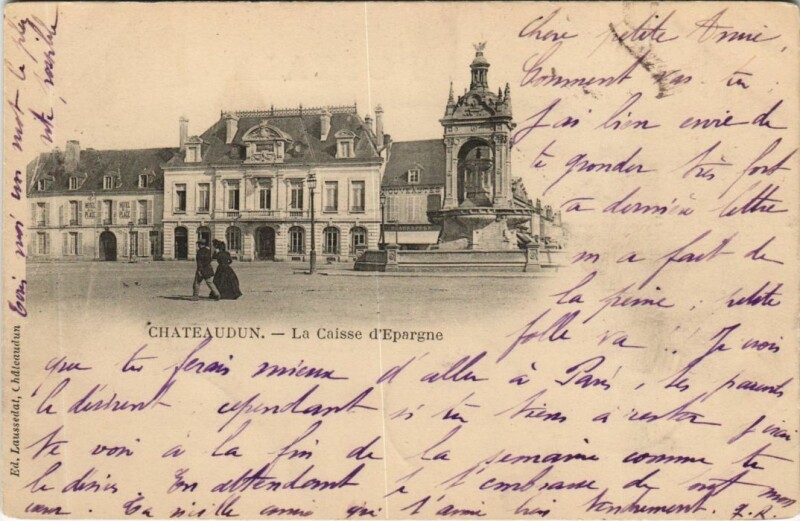 Chère petite Amie,
Comment vas tu
J'ai bien envie de
te gronder très fort
ta dernière lettre
m'a fait de
la peine ; petite
folle va !! Je crois
que tu ferais mieux d'aller à Paris, tes parents
le désirent, cependant si tu tiens à rester j'irai
te voir à la fin de la semaine comme tu
le désires En attendant je t'embrasse de tout mon
cœur. Ta vieille amie qui t'aime bien tendrement. Z. R.
Ecris moi un mot le plus
vite possible
HOTEL
PLACE
CHATEAUDUN. — La Caisse d'Epargne
Ed. Laussedat, Châteaudun